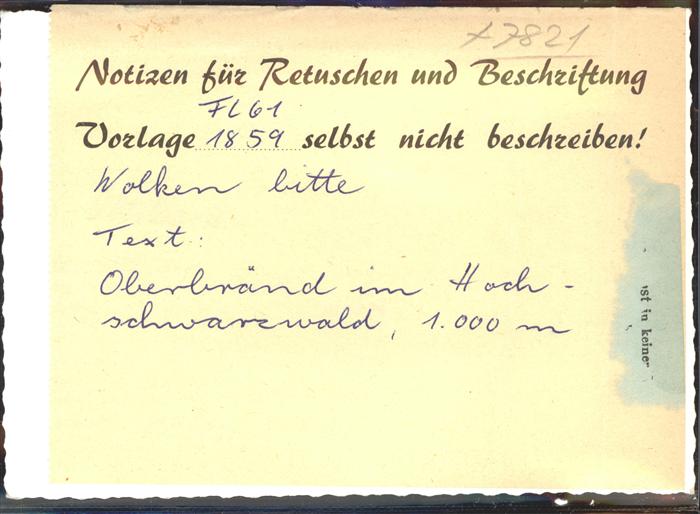 +7821
Notizen für Retuschen und Beschriftung
FL61
Vorlage 1859 selbst nicht beschreiben!
Wolken bitte
Text:
Oberbränd im Hoch-
schwarzwald, 1.000 m
ist in keiner